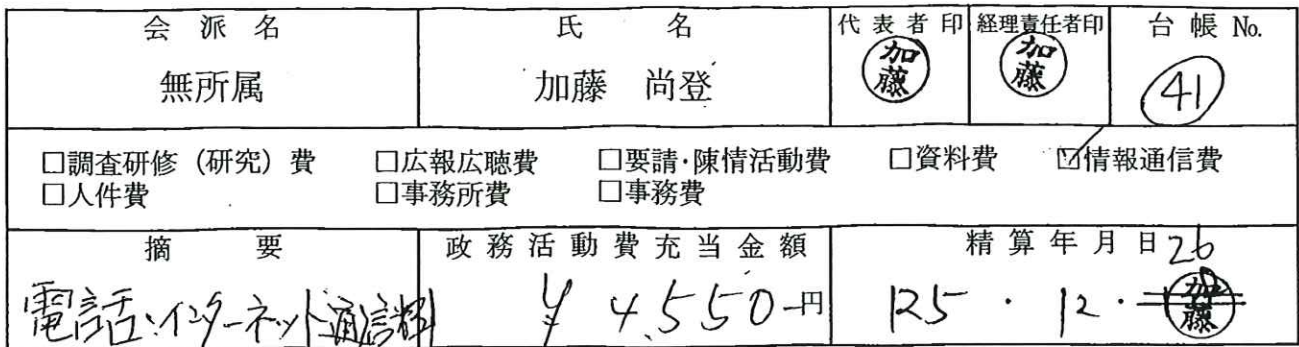 会派名 氏名 代表者印 経理責任者印 台帳 No.
無所属 加藤 尚登 加藤 加藤 41
□調査研修(研究)費 □広報広聴費 □要請・陳情活動費 □資料費 ☑情報通信費
□人件費 □事務所費 □事務費
摘要 政務活動費充当金額 精算年月日
電話・インターネット通信料 ¥4,550-円 125・12・26 加藤